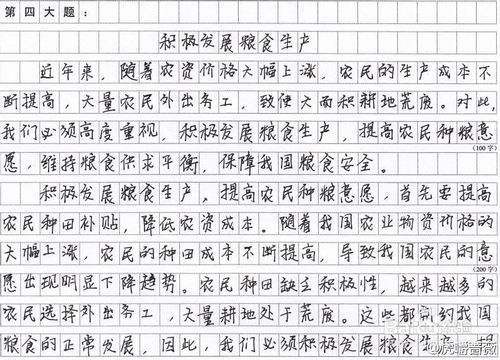 第四大题：
积极发展粮食生产
近年来，随着农资价格大幅上涨，农民的生产成本不
断提高，大量农民外出务工，致使大面积耕地荒废。对此，
我们必须高度重视，积极发展粮食生产，提高农民种粮意
(100字)
愿，维持粮食供求平衡，保障我国粮食安全。
积极发展粮食生产。提高农民种粮意愿，首先要提高
农民种田补贴，降低农资成本。随着我国农业物资价格的
大幅上涨，农民的种田成本不断提高，导致我国农民的意
(200字)
愿出现明显下降趋势。农民种田缺乏积极性，越来越多的
农民选择外出务工，大量耕地处于荒废。这些都制约我国
粮食的正常发展，因此，我们必须积极发展粮食生产